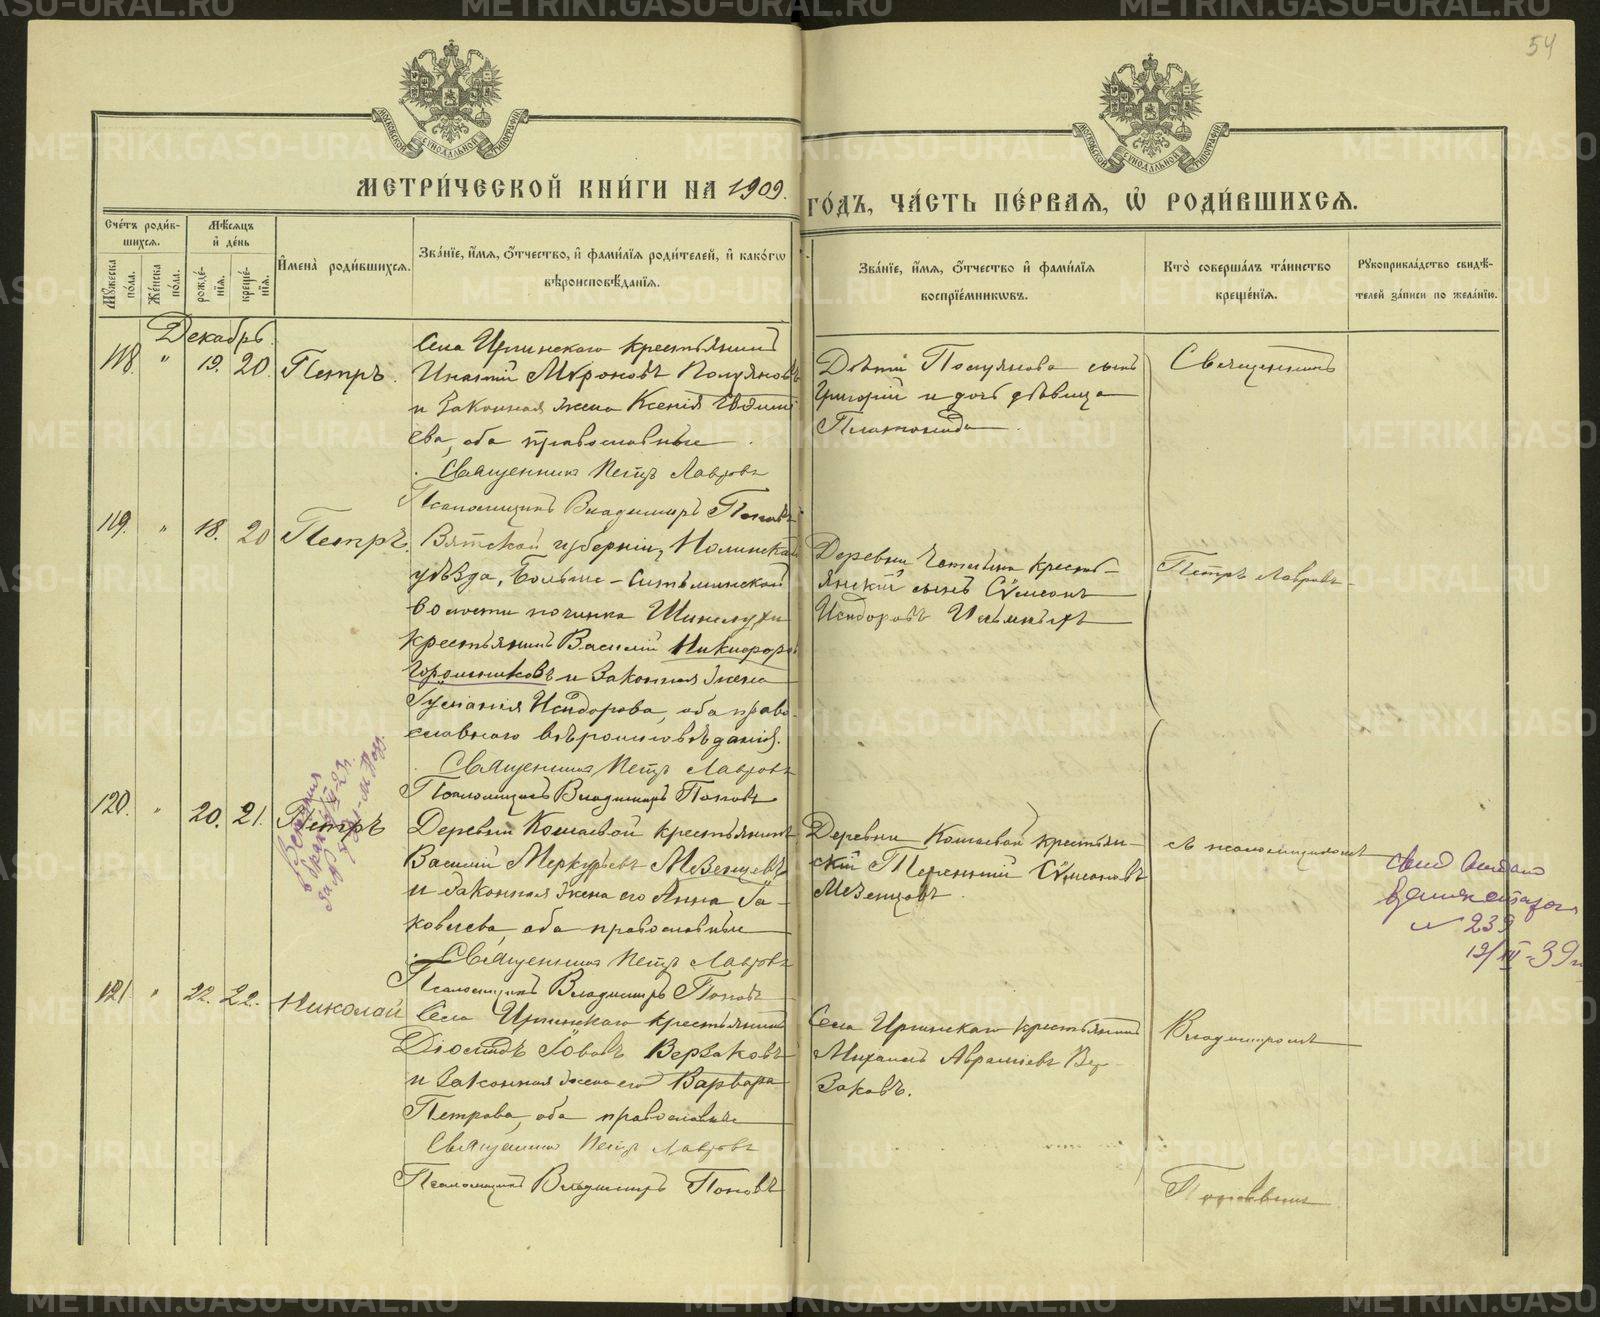 54
МЕТРИ́ЧЕСКОЙ КНИ́ГИ НА 1909.
ГО́ДЪ, ЧА́СТЬ ПЕ́РВАЯ, Ѡ РОДИ́ВШИХСЯ.
Сче́тъ роди́в-
шихся.
Мꙋ́жеска по́ла.
Же́нска по́ла.
Мѣ́сяцъ
и҆ де́нь
рожде́-
нїя.
креще́-
нїя.
И҆мена̀ роди́вшихся.
Зва́нїе, и҆́мя, ѻ҆́тчество, и҆ фами́лїя роди́телей, и҆ како́гѡ
вѣроисповѣ́данїя.
Зва́нїе, и҆́мя, ѻ҆́тчество и҆ фами́лїя
воспрїе́мникѡвъ.
Кто̀ соверша́лъ та́инство
креще́нїя.
Рꙋкоприкла́дство свидѣ́-
телей за́писи по жела́нїю.
Декабрь.
118. " 19. 20. Петръ.
Села Иргинскаго крестьянинъ
Игнатій Мѵроновъ
и законная жена Ксенія
ева, оба православные.
Священникъ Петръ Лавровъ
Псаломщикъ Владимиръ Поповъ
Дѣти сынъ
Григорій и дочь дѣвица
Священникъ
119. " 18. 20 Петръ.
Вятской губерніи, Нолинскаго
уѣзда, Больше-Ситьминской
волости починка
крестьянинъ Василій Никифоровъ
и законная жена
Исидорова, оба право-
славнаго вѣроисповѣданія.
Священникъ Петръ Лавровъ
Псаломщикъ Владимиръ Поповъ
Деревни крестьянскій сынъ Сѵмеонъ
Исидоровъ
Петръ Лавровъ
120. " 20. 21. Петръ
Деревни Кошаевой крестьянинъ
Василій Меркурьевъ Мезенцевъ
и законная жена его Анна Іа-
ковлева, оба православные
Священникъ Петръ Лавровъ
Псаломщикъ Владимиръ Поповъ
Деревни Кошаевой крестьян-
скій Терентій Сѵмеоновъ
Мезенцовъ.
съ псаломщикомъ
№ 239
12/III-39 г
121. " 22. 22. Николай
Села Иргинскаго крестьянинъ
Діомидъ Іововъ Верзаковъ
и законная жена его Варвара
Петрова, оба православные
Священникъ Петръ Лавровъ
Псаломщикъ Владимиръ Поповъ
Села Иргинскаго крестьянинъ
Михаилъ Авраміевъ Вер-
заковъ.
Владимиромъ
Поповымъ
METRIKI.GASO-URAL.RU